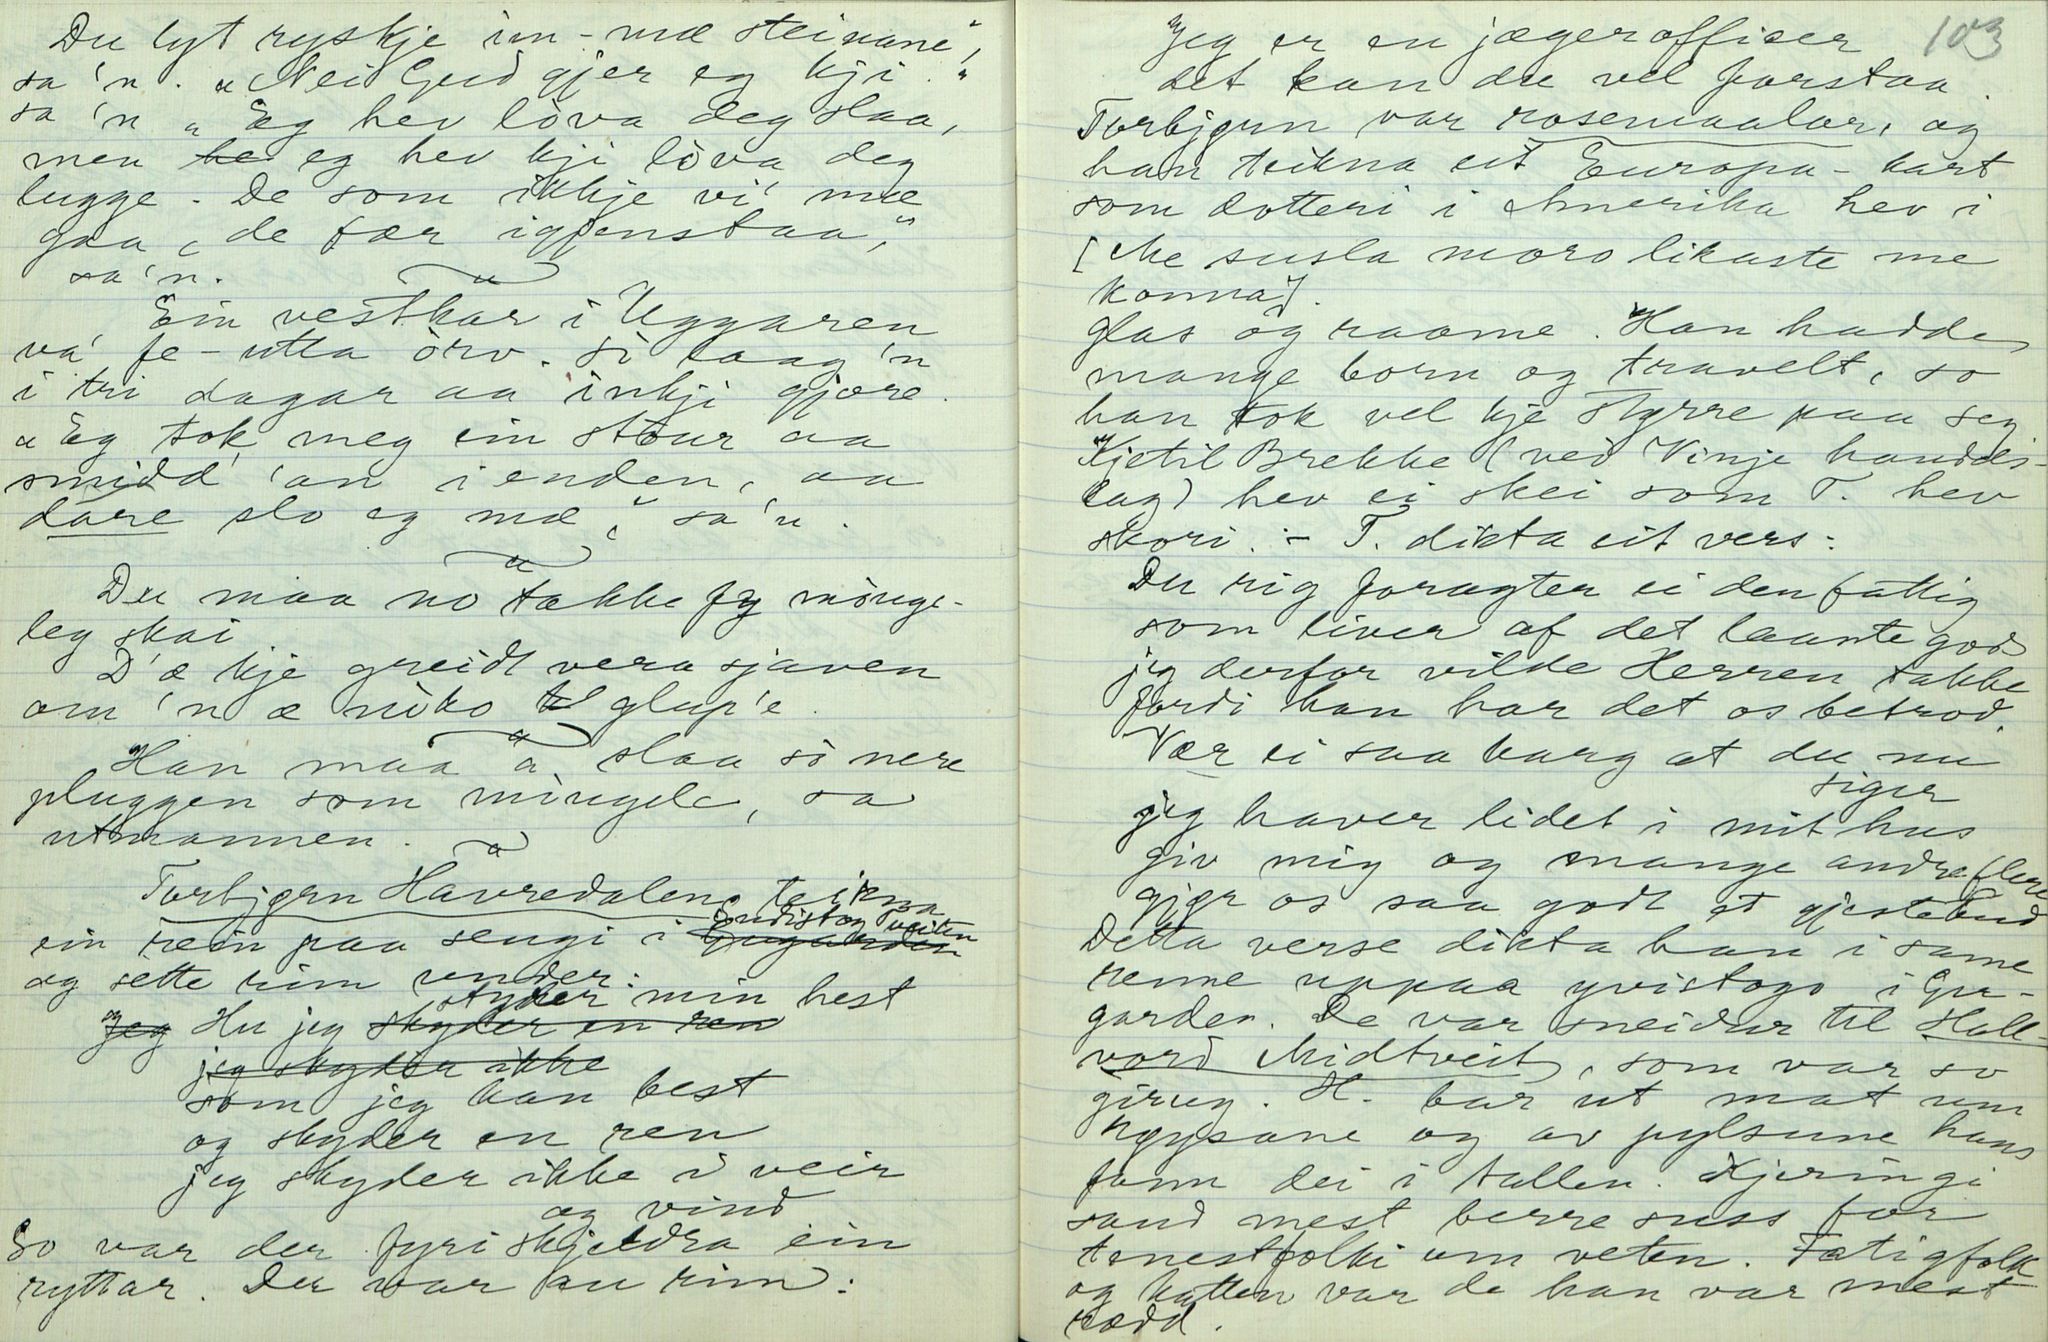 Du lyt ryskje im - mæ steinane",
sa 'n. "Nei Gud gjer eg kji."
sa 'n "Eg hev lòva deg slaa,
men he eg hev kji lòva deg
lugge. De som ikkje vi' mæ
gaa, de fær igjenstaa,"
sa 'n.
Ein vestkar i Uggaren
va' fe - utta òrv. Si laag 'n
i tri dagar aa inkji gjore.
"Eg tok meg ein staur aa
smidd' 'an i enden, aa
dare slo eg mæ," sa 'n.
Du maa no takke fy mònge-
leg skai
D' æ kje greidt vera sjaven
om 'n æ niko te glup'e.
Han maa å slaa si nere
pluggen som mingele, sa
utmannen.
Torbjørn Havredalen teikna
ein rein paa sengi i Gugarden Sudistog Tveiten
og sette rim under:
Jeg og Hu jeg skyder en ren styder min hest
jeg skyder ikke
som jeg kan best
og skyder en ren
jeg skyder ikke i veir
og vind
So var der fyri skjeldra ein
ryttar. Der var eu rim:
103
Jeg er en jægerofficer
det kan du vel forstaa.
Torbjørn var rosemaalar, og
han teikna eit Europa-kart
som dotteri i Amerika hev i
[Me susla moro likaste me
konna].
glas og raame. Han hadde
mange born og travelt, so
han tok vel kje styrre paa seg
Kjetil Brekke (ved Vinje handels-
lag) hev ei skei som T. hev
skori. - T. dikta eit vers:
Du rig foragter ei den fattig
som liver af det laante god
jeg derfor vilde Herren takke
fordi han har det os betrod.
Vær ei saa karg at du nu
siger
jeg haver lidet i mit hus
giv mig og mange andre flere
gjør os saa godt et gjestebud
Detta verse dikta han i same
renne uppaa yvistogo i Gu-
garden. De var sneidar til Hall-
vord Midtveit, som var so
girug. H. bar ut mat um
og av pylsune hans
fann dei i tallen. Kjeringi
saud mest berre suss for
tenestfolki um veten. Fatigfolk
og katten var de han var mest
rædd.